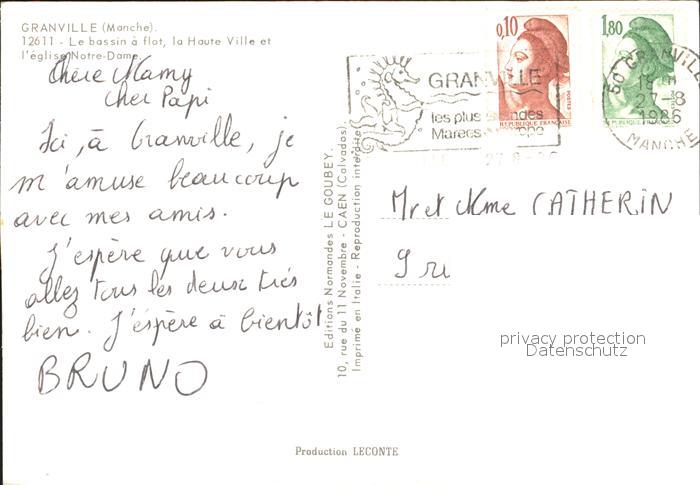 GRANVILLE (Manche).
12611 - Le bassin à flot, la Haute Ville et
l'église Notre-Dame.
Chère Mamy
Cher Papi
Ici, à Granville, je
m'amuse beaucoup
avec mes amis.
J'espère que vous
allez tous les deux très
bien. J'éspère à bientôt
BRUNO
Editions Normandes LE GOUBEY.
10, rue du 11 Novembre - CAEN (Calvados)
Imprimé en Italie - Reproduction interdite
GRANVILLE
les plus grandes
Marées
0,10
POSTES
REPUBLIQUE FRANCAISE
1,80
50 GRANVILLE
27-8
1986
MANCHE
Mr et Mme CATHERIN
privacy protection
Datenschutz
Production LECONTE